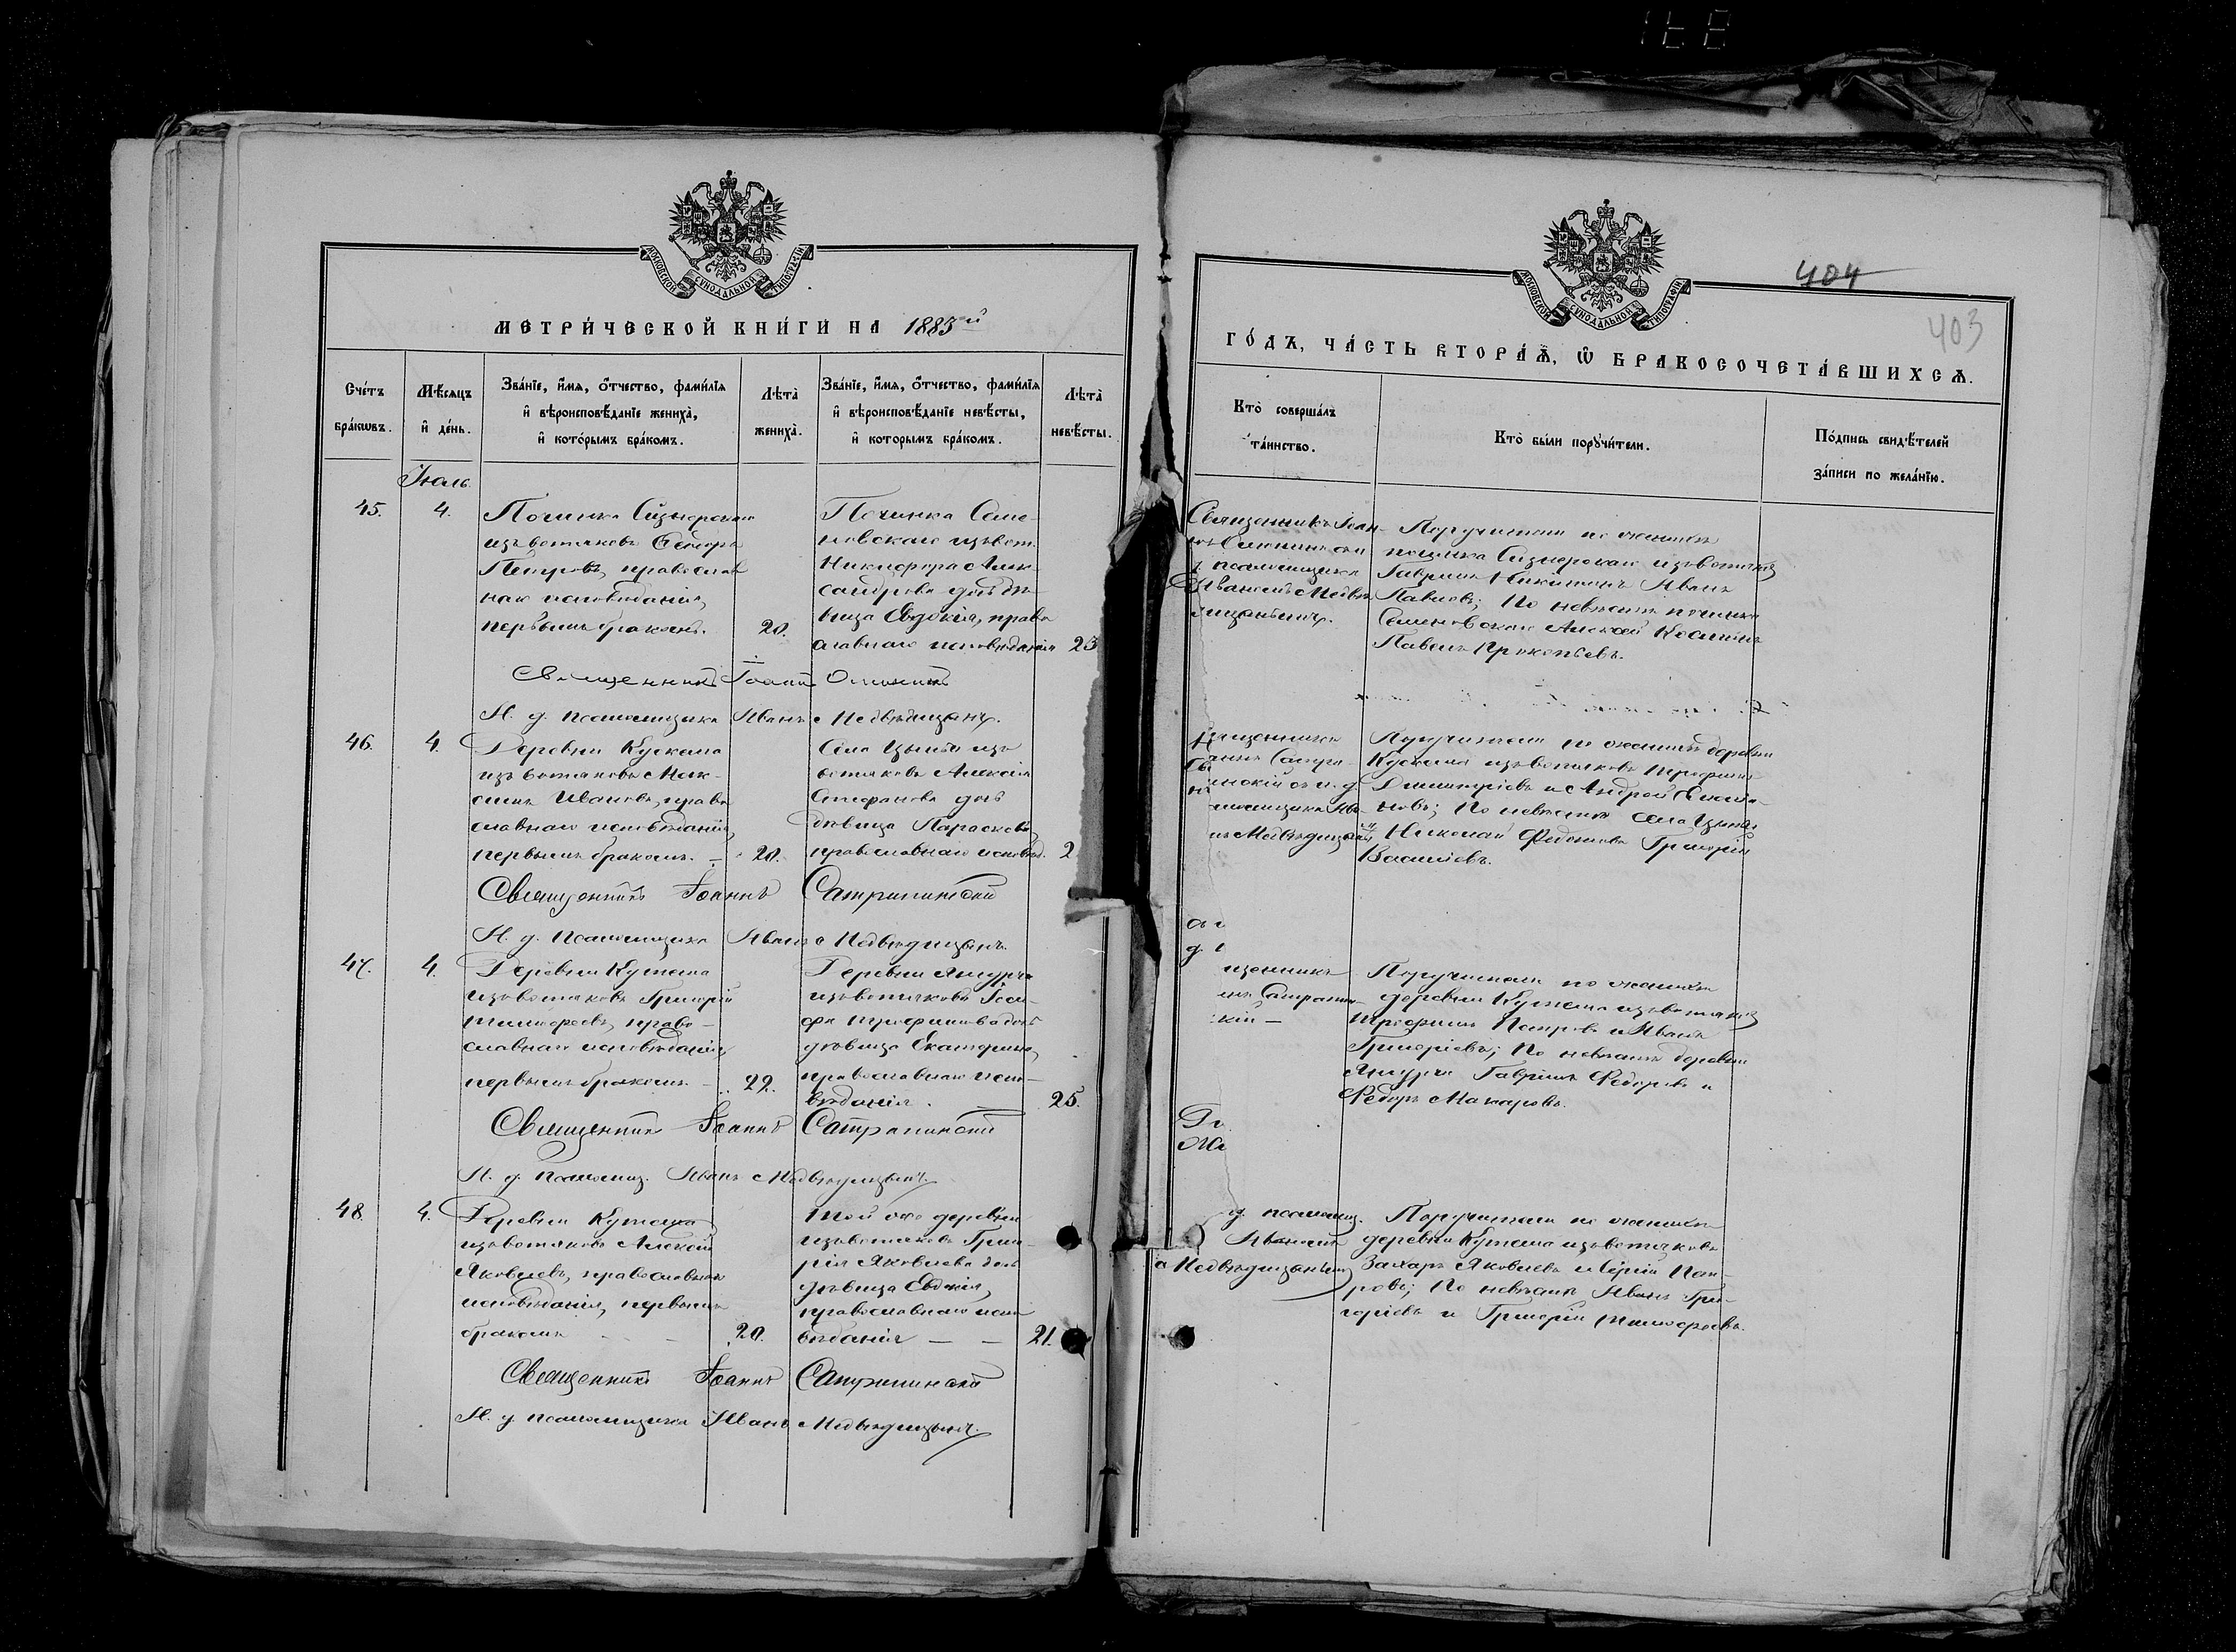 404
403
МОСКОВСКОЙ СѴНОДАЛЬНОЙ ТИПОГРАФІИ
МЕТРИ́ЧЕСКОЙ КНИ́ГИ НА 1883й
Сче́тъ бра́кѡвъ.
Мѣ́сѧцъ и҆ де́нь.
Зва́нїе, и҆́мѧ, ѻ҆́тчество, фами́лїѧ и҆ вѣроисповѣ́данїе жениха̀, и҆ кото́рымъ бра́комъ.
Лѣта̀ жениха̀.
Зва́нїе, и҆́мѧ, ѻ҆́тчество, фами́лїѧ и҆ вѣроисповѣ́данїе невѣ́сты, и҆ кото́рымъ бра́комъ.
Лѣта̀ невѣ́сты.
Іюль.
45.
4.
Починка
изъ вотяковъ Ѳедоръ
Петровъ, православ
наго исповѣданія,
первымъ бракомъ.
20.
Починка Семе-
новскаго изъ вот.
Никифора Алек-
сандрова дочь дѣ-
вица Евдокія, право
славнаго исповѣданія
23
Священникъ Іоаннъ
И. д. псаломщика Иванъ Медвѣдицынъ.
46.
4.
Деревни
изъ вотяковъ Мак-
симъ Ивановъ, право
славнаго исповѣданія,
первымъ бракомъ. –
20.
Села Цыпьи изъ
вотяковъ Алексія
Стефанова дочь
дѣвица Параскева,
православнаго исповѣд.
2
Священникъ Іоаннъ Сатрапинскій
И. д. псаломщика Иванъ Медвѣдицынъ.
47.
4.
Деревни Кутеша
изъ вотяковъ Григорій
Тимофеевъ, право-
славнаго исповѣданія,
первымъ бракомъ. –
22.
Деревни
изъ вотяковъ Іоси-
фа Трофимова дочь
дѣвица Екатерина,
православнаго испо-
вѣданія.
25.
Священникъ Іоаннъ Сатрапинскій
И. д. псаломщ. Иванъ Медвѣдицынъ.
48.
4.
Деревни Кутеша
изъ вотяковъ Алексій
Яковлевъ, православнаго
исповѣданія, первымъ
бракомъ – –
20.
Той же деревни
изъ вотяковъ Григо-
рія Яковлева дочь
дѣвица Евдокія,
православнаго испо
вѣданія – –
21.
Священникъ Іоаннъ Сатрапинскій
И. д. псаломщика Иванъ Медвѣдицынъ.
МОСКОВСКОЙ СѴНОДАЛЬНОЙ ТИПОГРАФІИ
ГО́ДЪ, ЧА́СТЬ ВТОРА́Ѧ, Ѽ БРАКОСОЧЕТА́ВШИХСѦ.
Кто̀ соверша́лъ та́инство.
Кто̀ бы́ли порꙋчи́тели.
По́дпись свидѣ́телей за́писи по жела́нїю.
Священникъ Іоан-
псаломщика
Иваномъ Медвѣ
дицынымъ.
Поручители по женихѣ
починка изъ вотяковъ
Гавріилъ Никитинъ Иванъ
Павловъ; По невѣстѣ починка
Семеновскаго Алексѣй Косминъ
Павелъ Прокопьевъ.
щенникъ
аннъ Сатра-
инскій съ и. д.
ломщика Ива-
Медвѣдицынъ
Поручители по женихѣ деревни
изъ вотяковъ Трофимъ
Димитріевъ и Андрей
новъ; По невѣстѣ села Цыпьи
Николай Федотовъ Григорій
Васильевъ.
щенникъ
нъ Сатрапин-
скій –
Поручители по женихѣ
деревни Кутеша изъ вотяковъ
Трофимъ Петровъ и Иванъ
Григорьевъ; По невѣстѣ деревни
Гавріилъ Федоровъ и
Федоръ Макаровъ.
д. псаломщ.
Иваномъ
Медвѣдицынымъ
Поручители по женихѣ
деревни Кутеша изъ вотяковъ
Захаръ Яковлевъ и Сергій Пет-
ровъ; По невѣстѣ Иванъ Гри-
горьевъ и Григорій Тимофеевъ.